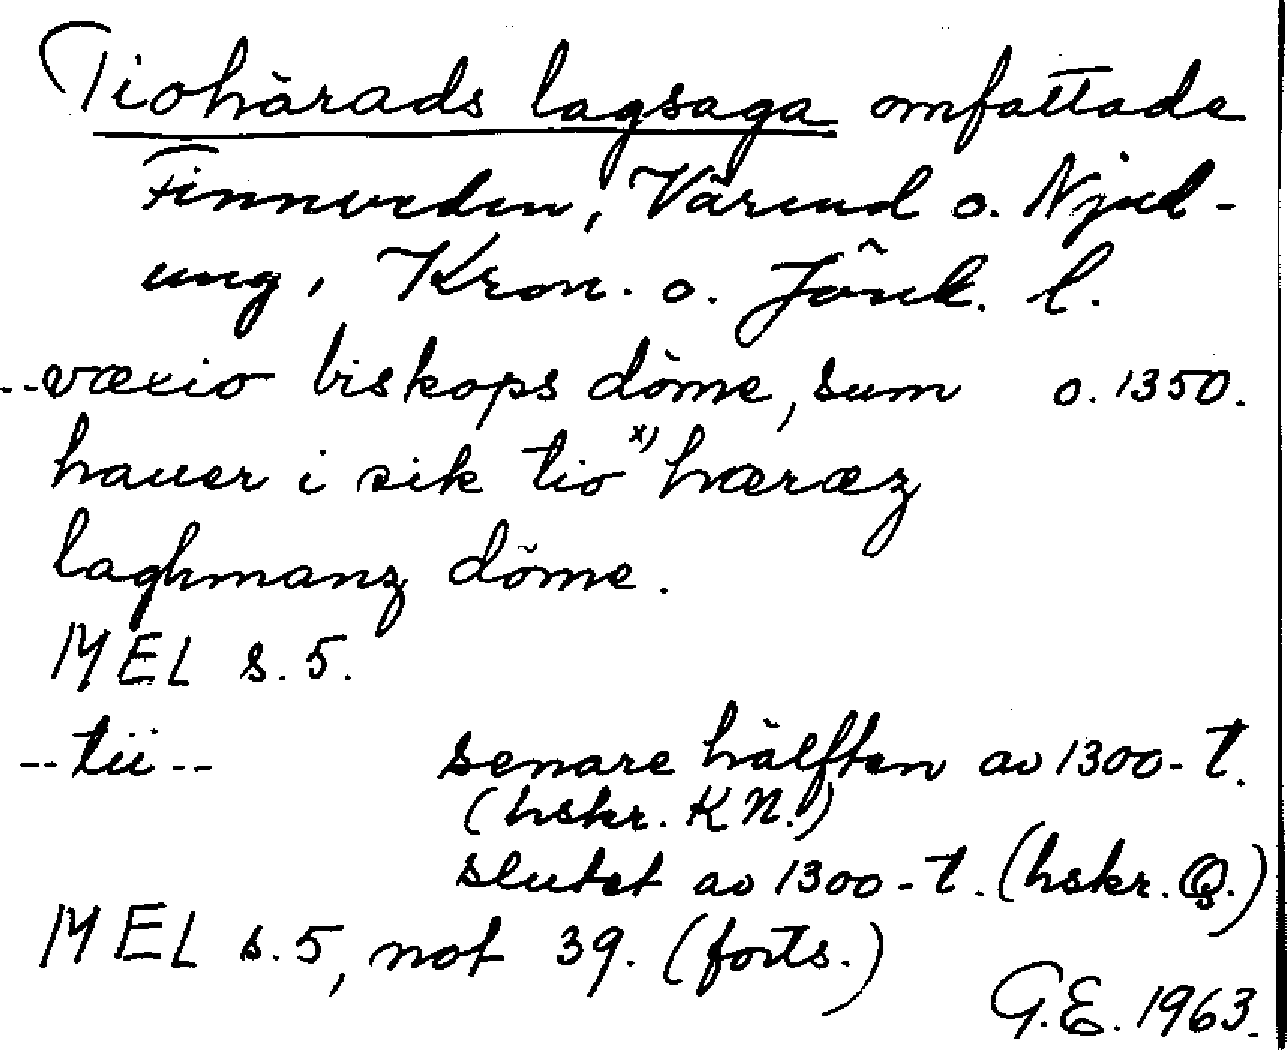 Tiohärads lagsaga omfattade
Finnveden, Värend o. Njud-
ung, Kron. o. Jönk. l.
--væxio biskops döme, sum o. 1350.
hauer i sik tio x) hæræz
laghmanz döme.
MEL s. 5.
--tii-- senare hälften av 1300-t.
(hskr. K N.)
slutet av 1300-t. (hskr. Q.)
MEL s. 5, not 39. (forts.)
G.E. 1963.